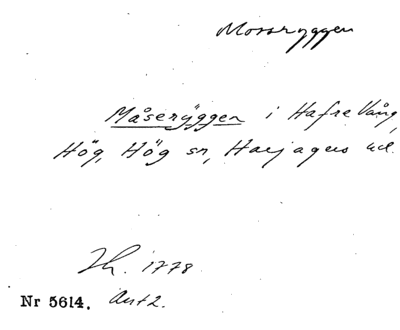 Mossryggen
Måserÿggen i Hafre Vång,
Hög, Hög sn, Harjagers hd.
Lh. 1778.
Nr 5614. Akt 2.